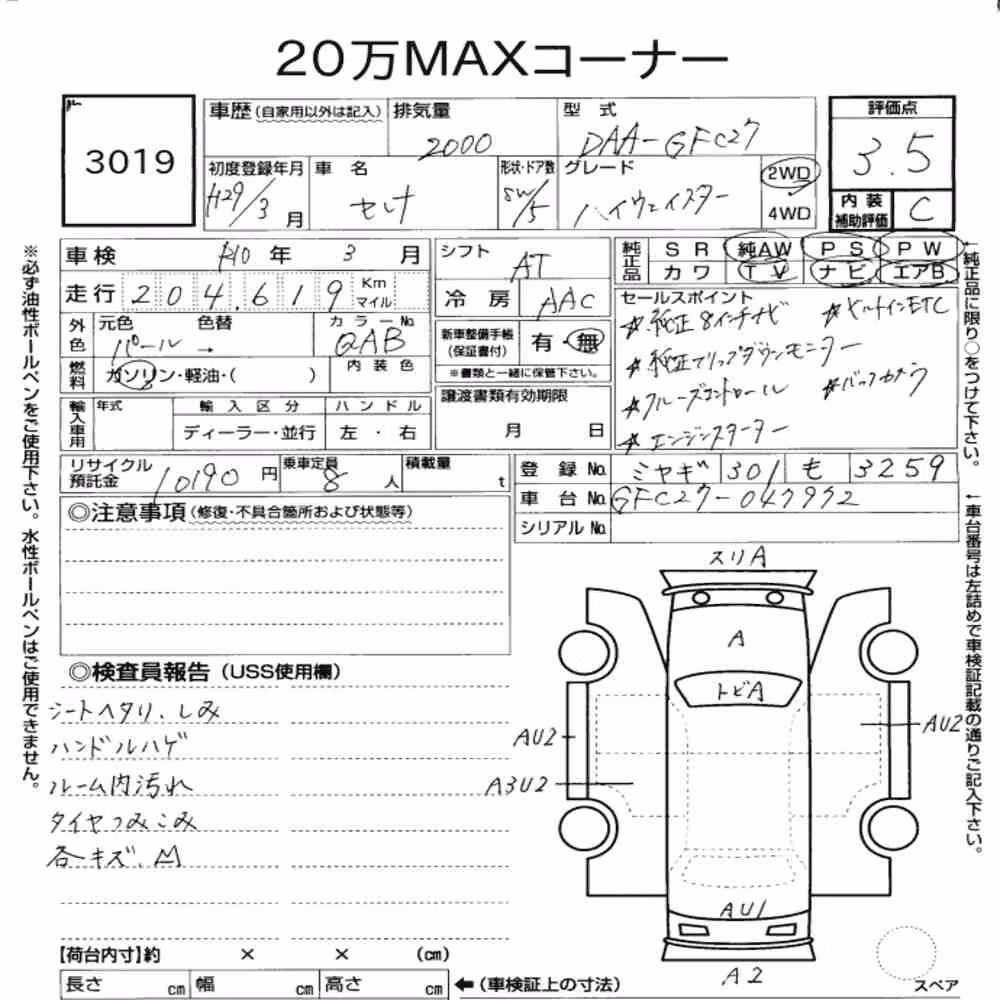 20万MAXコーナー
3019
車歴(自家用以外は記入)
排気量
2000
型 式
DAA-GFC27
評価点
3.5
初度登録年月
H29/3 月
車 名
セレナ
形状・ドア数
SW/5
グレード
ハイウェイスター
2WD
4WD
内 装
補助評価
C
車 検 R10 年 3 月
シフト
AT
純正品
S R 純AW P S P W
カ ワ T V ナ ビ エアB
走 行 204,619 Km
マイル
冷 房 AAC
セールスポイント
☆純正8インチナビ ☆ビルトインETC
☆純正フリップダウンモニター
☆クルーズコントロール ☆バックカメラ
☆エンジンスターター
外色
元色 色替
パール →
カラーNo.
QAB
新車整備手帳
(保証書付)
有・無
※書類と一緒に保管下さい。
燃料
ガソリン・軽油・( )
内 装 色
輸入車用
年式
輸 入 区 分
ディーラー・並行
ハ ン ド ル
左 ・ 右
譲渡書類有効期限
月 日
リサイクル
預託金
10190 円
乗車定員
8 人
積載量
t
登 録 No. ミヤギ 301 も 3259
車 台 No. GFC27-047992
シリアル No.
◎注意事項(修復・不具合箇所および状態等)
◎検査員報告(USS使用欄)
シートヘタリ、しみ
ハンドルハゲ
ルーム内汚れ
タイヤつみこみ
各キズ、凹
スリA
A
トビA
AU2
AU2
A3U2
AU1
A2
スペア
【荷台内寸】約 × × (cm)
長さ cm 幅 cm 高さ cm ←(車検証上の寸法)
※必ず油性ボールペンをご使用下さい。水性ボールペンはご使用できません。
←純正品に限り○をつけて下さい。
←車台番号は左詰めで車検証記載の通りご記入下さい。